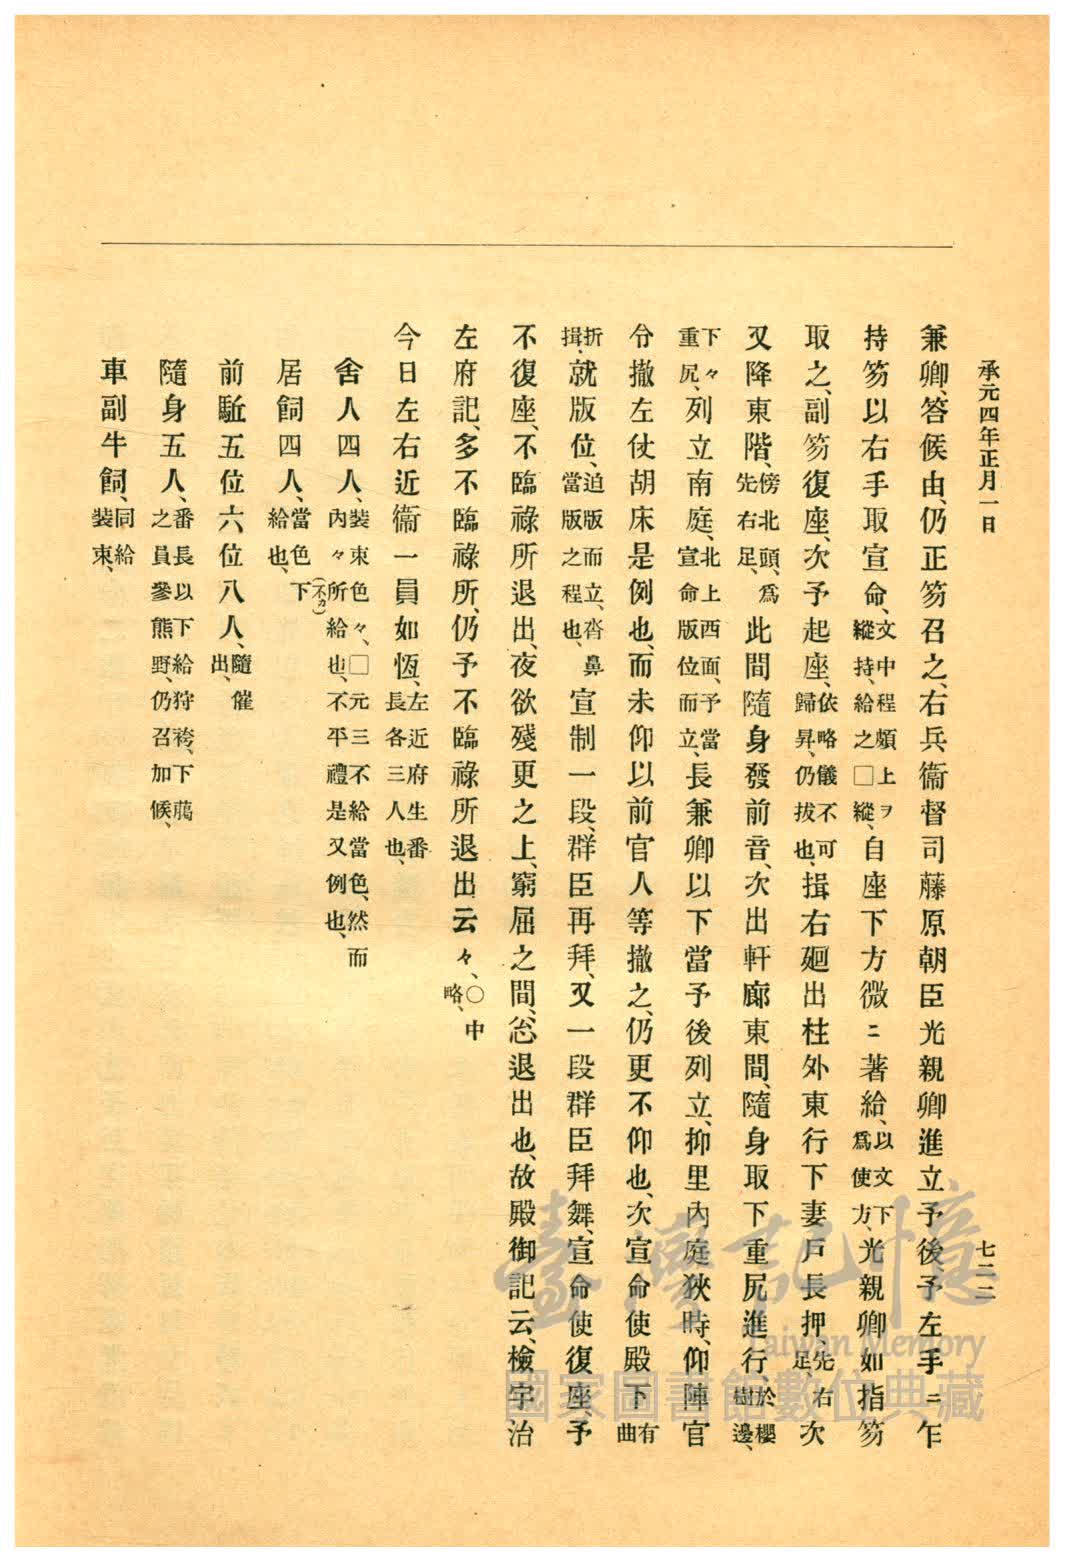 承元四年正月一日
七二二
兼卿、答候由、仍正笏召之、右兵衞督司藤原朝臣光親卿進立予後、予左手ニ乍
持笏以右手取宣命、文中程頗上ヲ縱持、給之□縱、自座下方微ニ著給、以文下爲使方、光親卿如指笏
取之、副笏復座、次予起座、依略儀不可歸昇、仍拔也、揖右廻出柱外東行下妻戶長押、先右足、次
又降東階、傍北頭、爲先右足、此間隨身發前音、次出軒廊東間、隨身取下重尻進行、於櫻樹邊、
下々重尻、列立南庭、北上西面、予當宣命版位而立、長兼卿以下當予後列立、抑里內庭狹時、仰陣官
令撤左仗胡床是例也、而未仰以前官人等撤之、仍更不仰也、次宣命使殿下有曲
折揖、就版位、迫版而立、沓鼻當版之程也、宣制一段、群臣再拜、又一段群臣拜舞、宣命使復座、予
不復座、不臨祿所退出、夜欲殘更之上、窮屈之間、忩退出也、故殿御記云、檢宇治
左府記、多不臨祿所、仍予不臨祿所退出云々、○中略、
今日左右近衞一員如恆、左近府生番長各三人也、
舍人四人、裝束色々、□元三不給當色、然而內々所給也、不平禮是又例也、
居飼四人、當色下(不カ)給也、
前駈五位六位八人、隨催出、
隨身五人、番長以下給狩袴、下﨟之員參熊野、仍召加候、
車副牛飼、同給裝束、
臺灣記憶
Taiwan Memory
國家圖書館數位典藏